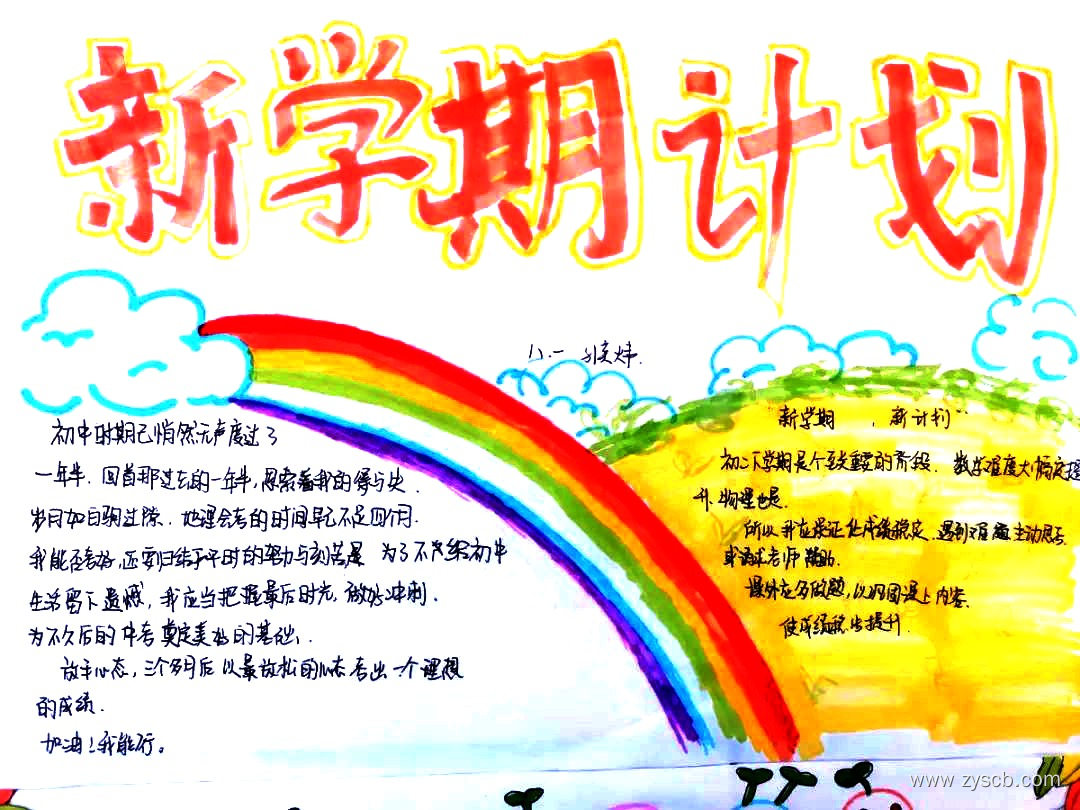 新学期计划
八.一
初中时期已悄然无声度过了
一年半，回首那过去的一年半，思索着我的得与失.
岁月如白驹过隙，地理会考的时间早已不足四个月.
我能否考好，还要归结于平时的努力与刻苦 为了不给初中
生活留下遗憾，我应当把握最后时光，做好冲刺.
为不久后的中考奠定基础.
放平心态，三个多月后以最放松的心态考出一个理想
的成绩.
加油！我能行。
"新学期 ，新计划"
初二下学期是个至关重要的阶段. 数学难度大幅度提
升.物理也是.
所以我应保证 成绩稳定.遇到难题主动思考
或请求老师帮助.
课外应多做题，以巩固课上内容.
使成绩稳步提升.
www.zyscb.com